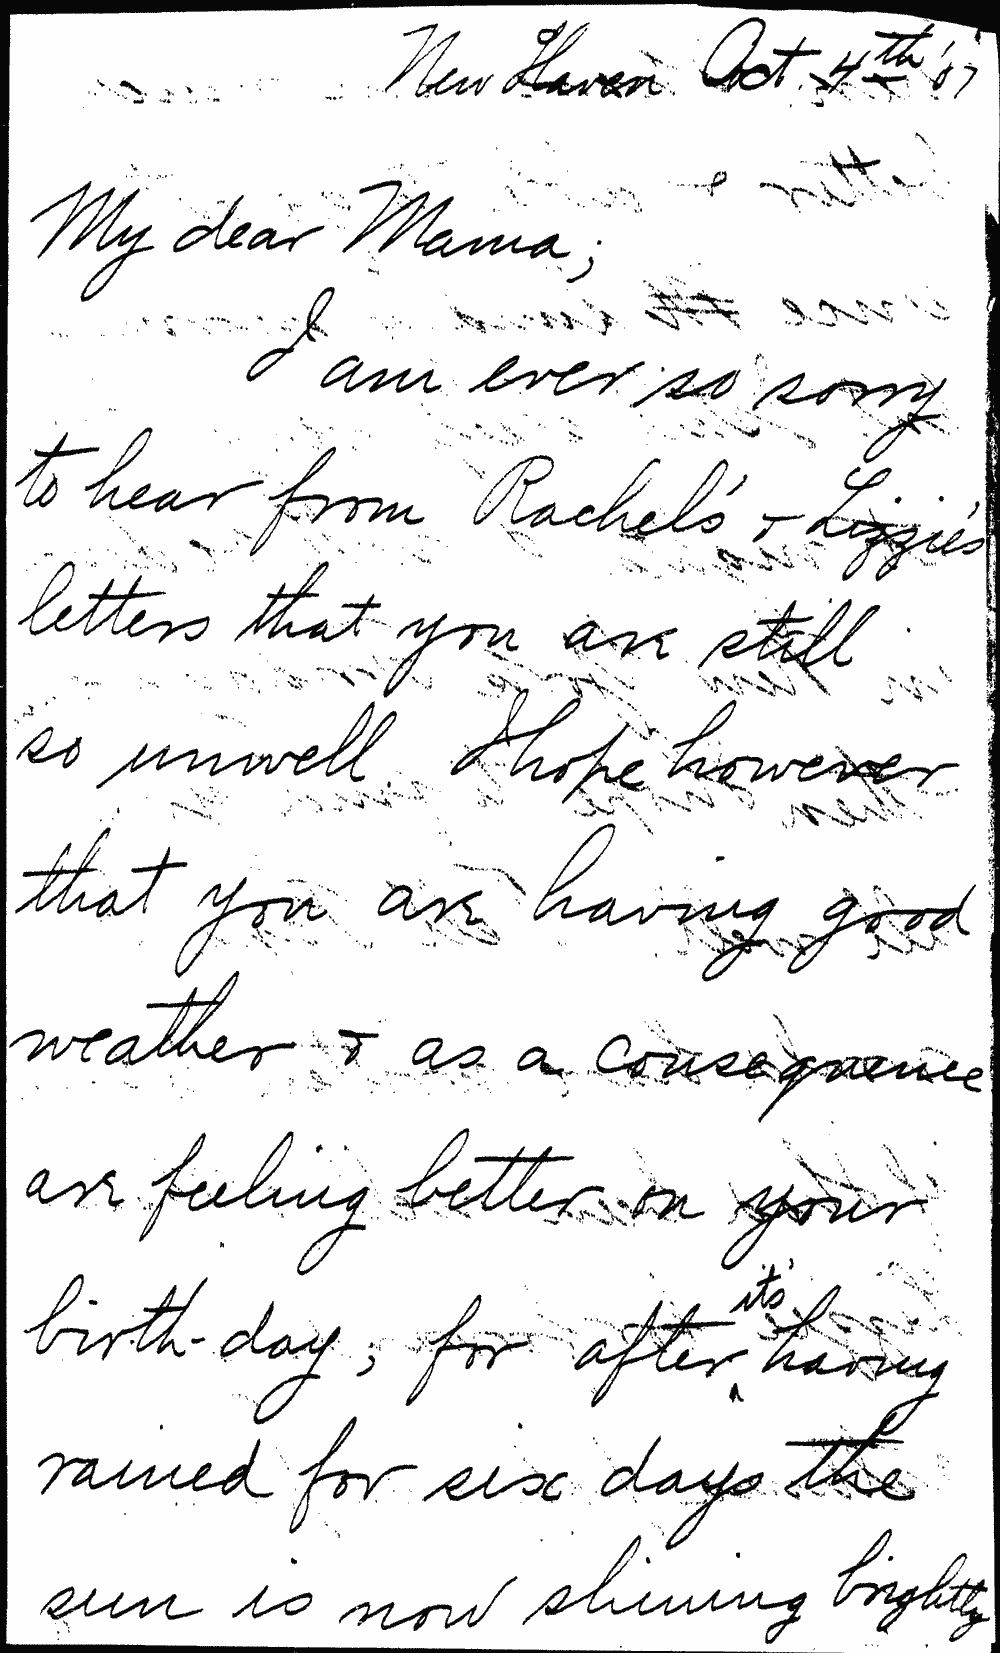 New Haven Oct 4th '07
My dear Mama;
I am ever so sorry
to hear from Rachel's & Lizzie's
letters that you are still
so unwell I hope however
that you are having good
weather & as a consequence
are feeling better on your
birth-day; for after it's having
rained for six days the
sun is now shining brightly